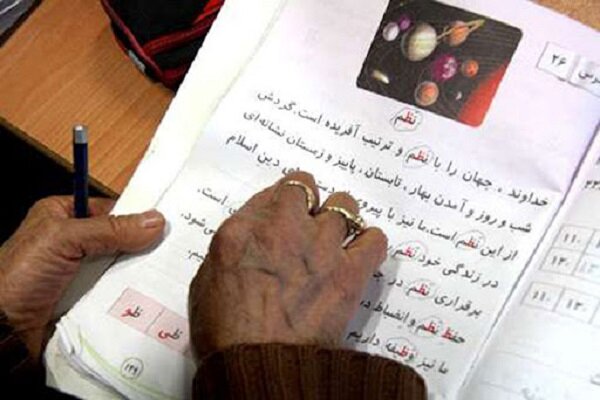 درس ۲۶
نظم
خداوند ، جهان را با نظم و ترتیب آفریده است. گردش
شب و روز و آمدن بهار ، تابستان ، پاییز و زمستان نشانه‌ای
از این نظم است. ما نیز با پیرو دین اسلام
در زندگی خود نظم است.
برقراری نظم در می‌شود.
حفظ نظم و انضباط
ما نیز وظیفه داریم
ظی ظو
۱۴۹
۱۱۰
۱۳۰
۱۱۰ ۱۳۰